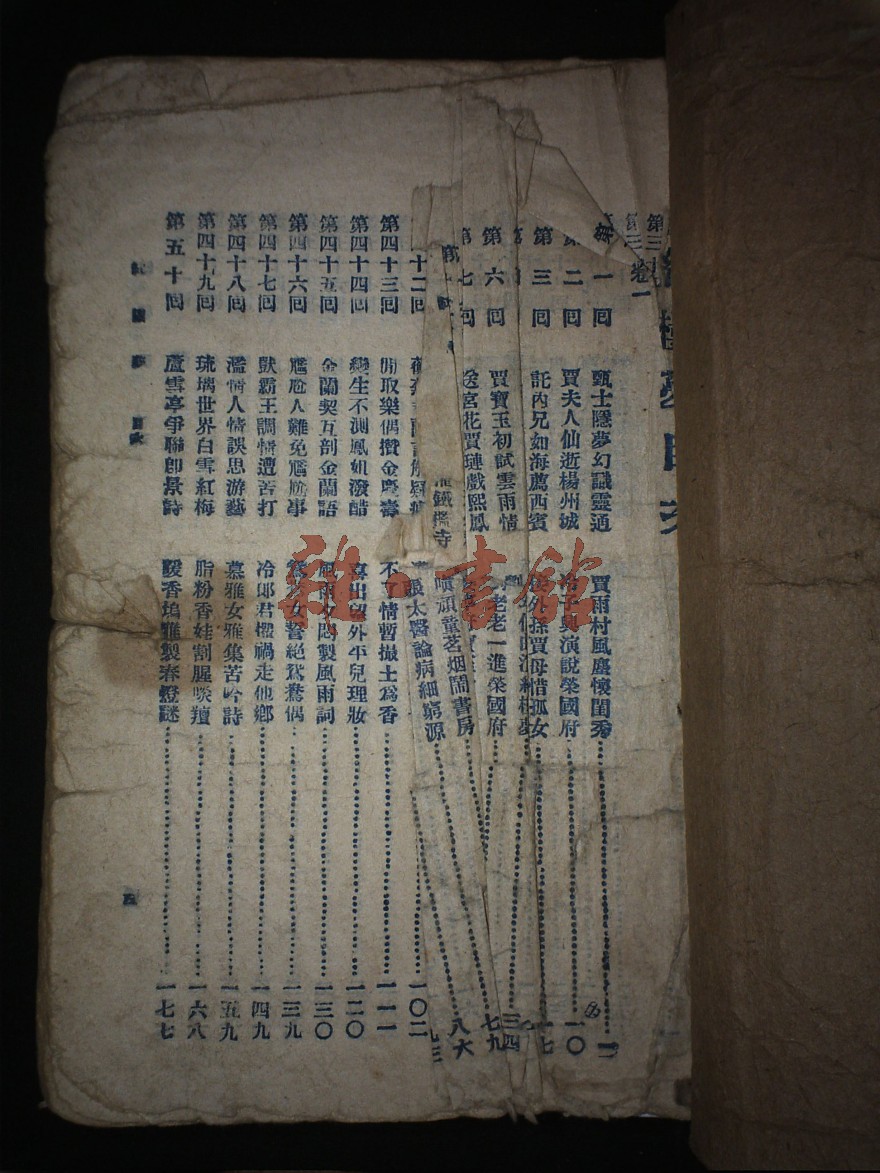 第三
第一回 甄士隱夢幻識靈通 賈雨村風塵懷閨秀 一
第二回 賈夫人仙逝楊州城 冷子興演說榮國府 一〇
第三回 託內兄如海薦西賓 外孫賈母惜孤女 一七
三四
第六回 賈寶玉初試雲雨情 老老一進榮國府 七九
第七回 送宮花賈璉戲熙鳳 八六
頑童茗烟鬧書房
鐵檻寺
太醫論病細窮源 九三
十二回 一〇二
第四十三回 閒取樂偶攢金慶壽 不了情暫撮土爲香 一一一
第四十四回 變生不測鳳姐潑醋 喜出望外平兒理妝 一二〇
第四十五回 金蘭契互剖金蘭語 風雨夕悶製風雨詞 一三〇
第四十六回 尷尬人難免尷尬事 鴛鴦女誓絕鴛鴦偶 一三九
第四十七回 獃霸王調情遭苦打 冷郎君懼禍走他鄉 一四九
第四十八回 濫情人情誤思游藝 慕雅女雅集苦吟詩 一五九
第四十九回 琉璃世界白雪紅梅 脂粉香娃割腥啖羶 一六八
第五十回 蘆雪亭爭聯卽景詩 暖香塢雅製春燈謎 一七七
紅樓夢 目次 五
雜·書館